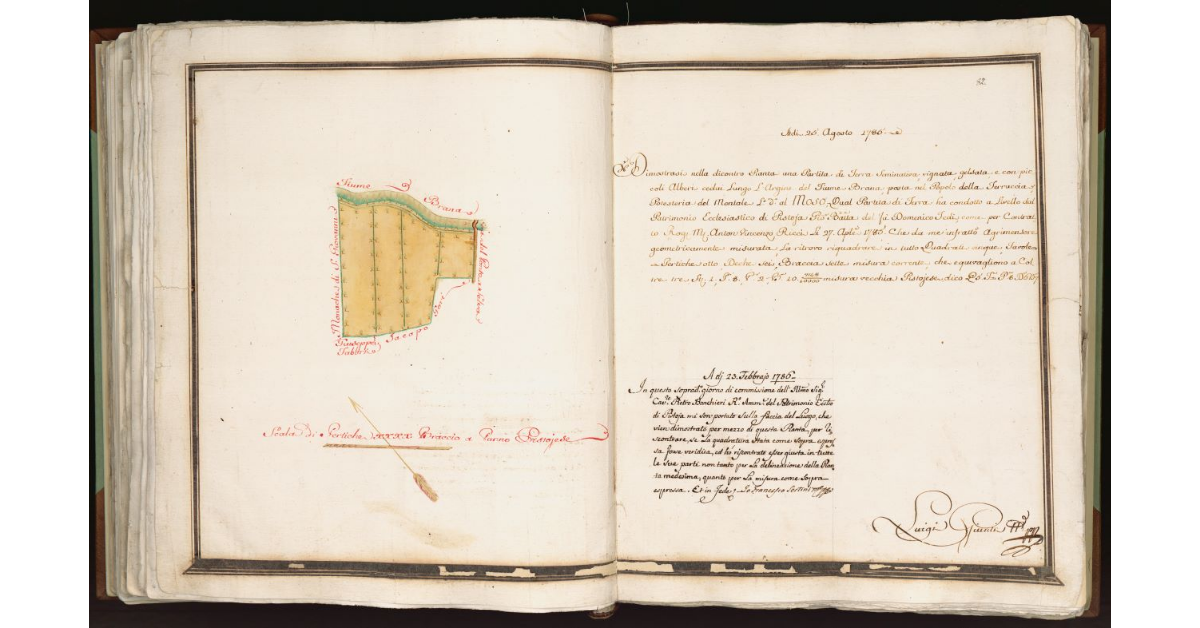 Fiume
Brana
Monache di S. Giovanni
Giuseppe
Jacopo
Scala di Pertiche Braccia a Panno Pistojese
52
Adi 25. Agosto 1786.
Dimostrasi nella dicontro Pianta una Partita di Terra Seminativa, vignata, gelsata e con pic
coli Alberi cedui Lungo L'Argine del Fiume Brana, posta nel Popolo della Ferruccia
Potesteria del Montale L. d. al Moso, Qual Partita di Terra ha condotto a Livello dal
Patrimonio Ecclesiastico di Pistoja Gio: Batta del fu Domenico Tedi, come per Contrat
to Rog. Mr. Anton Vincenzo Ricci 27. Che da me infratto Agrimensore
geometricamente misurata, La ritrovo riquadrare in tutto Quadrati cinque Tavole
Pertiche otto Deche sei Braccia sette misura corrente, che equivagliono a Col
tre tre misura vecchia Pistojese dico
A dj 23. Febbrajo 1786.
In questo soprad.o giorno di commissione dell' Illmo Sig.
Cav.e Pietro Banchieri R.o Amm.e del Patrimonio Eccles.
di Pistoja mi son portato sulla faccia del Luogo, che
vien dimostrato per mezzo di questa Pianta, per ri
scontrare, se La quadratura stata come sopra espres
sa fosse veridica, ed ho riscontrato esser giusta in tutte
le sue parti non tanto per La delineazione della Pian
ta medesima, quanto per La misura come Sopra
espressa. Et in fede Io Francesco
Luigi